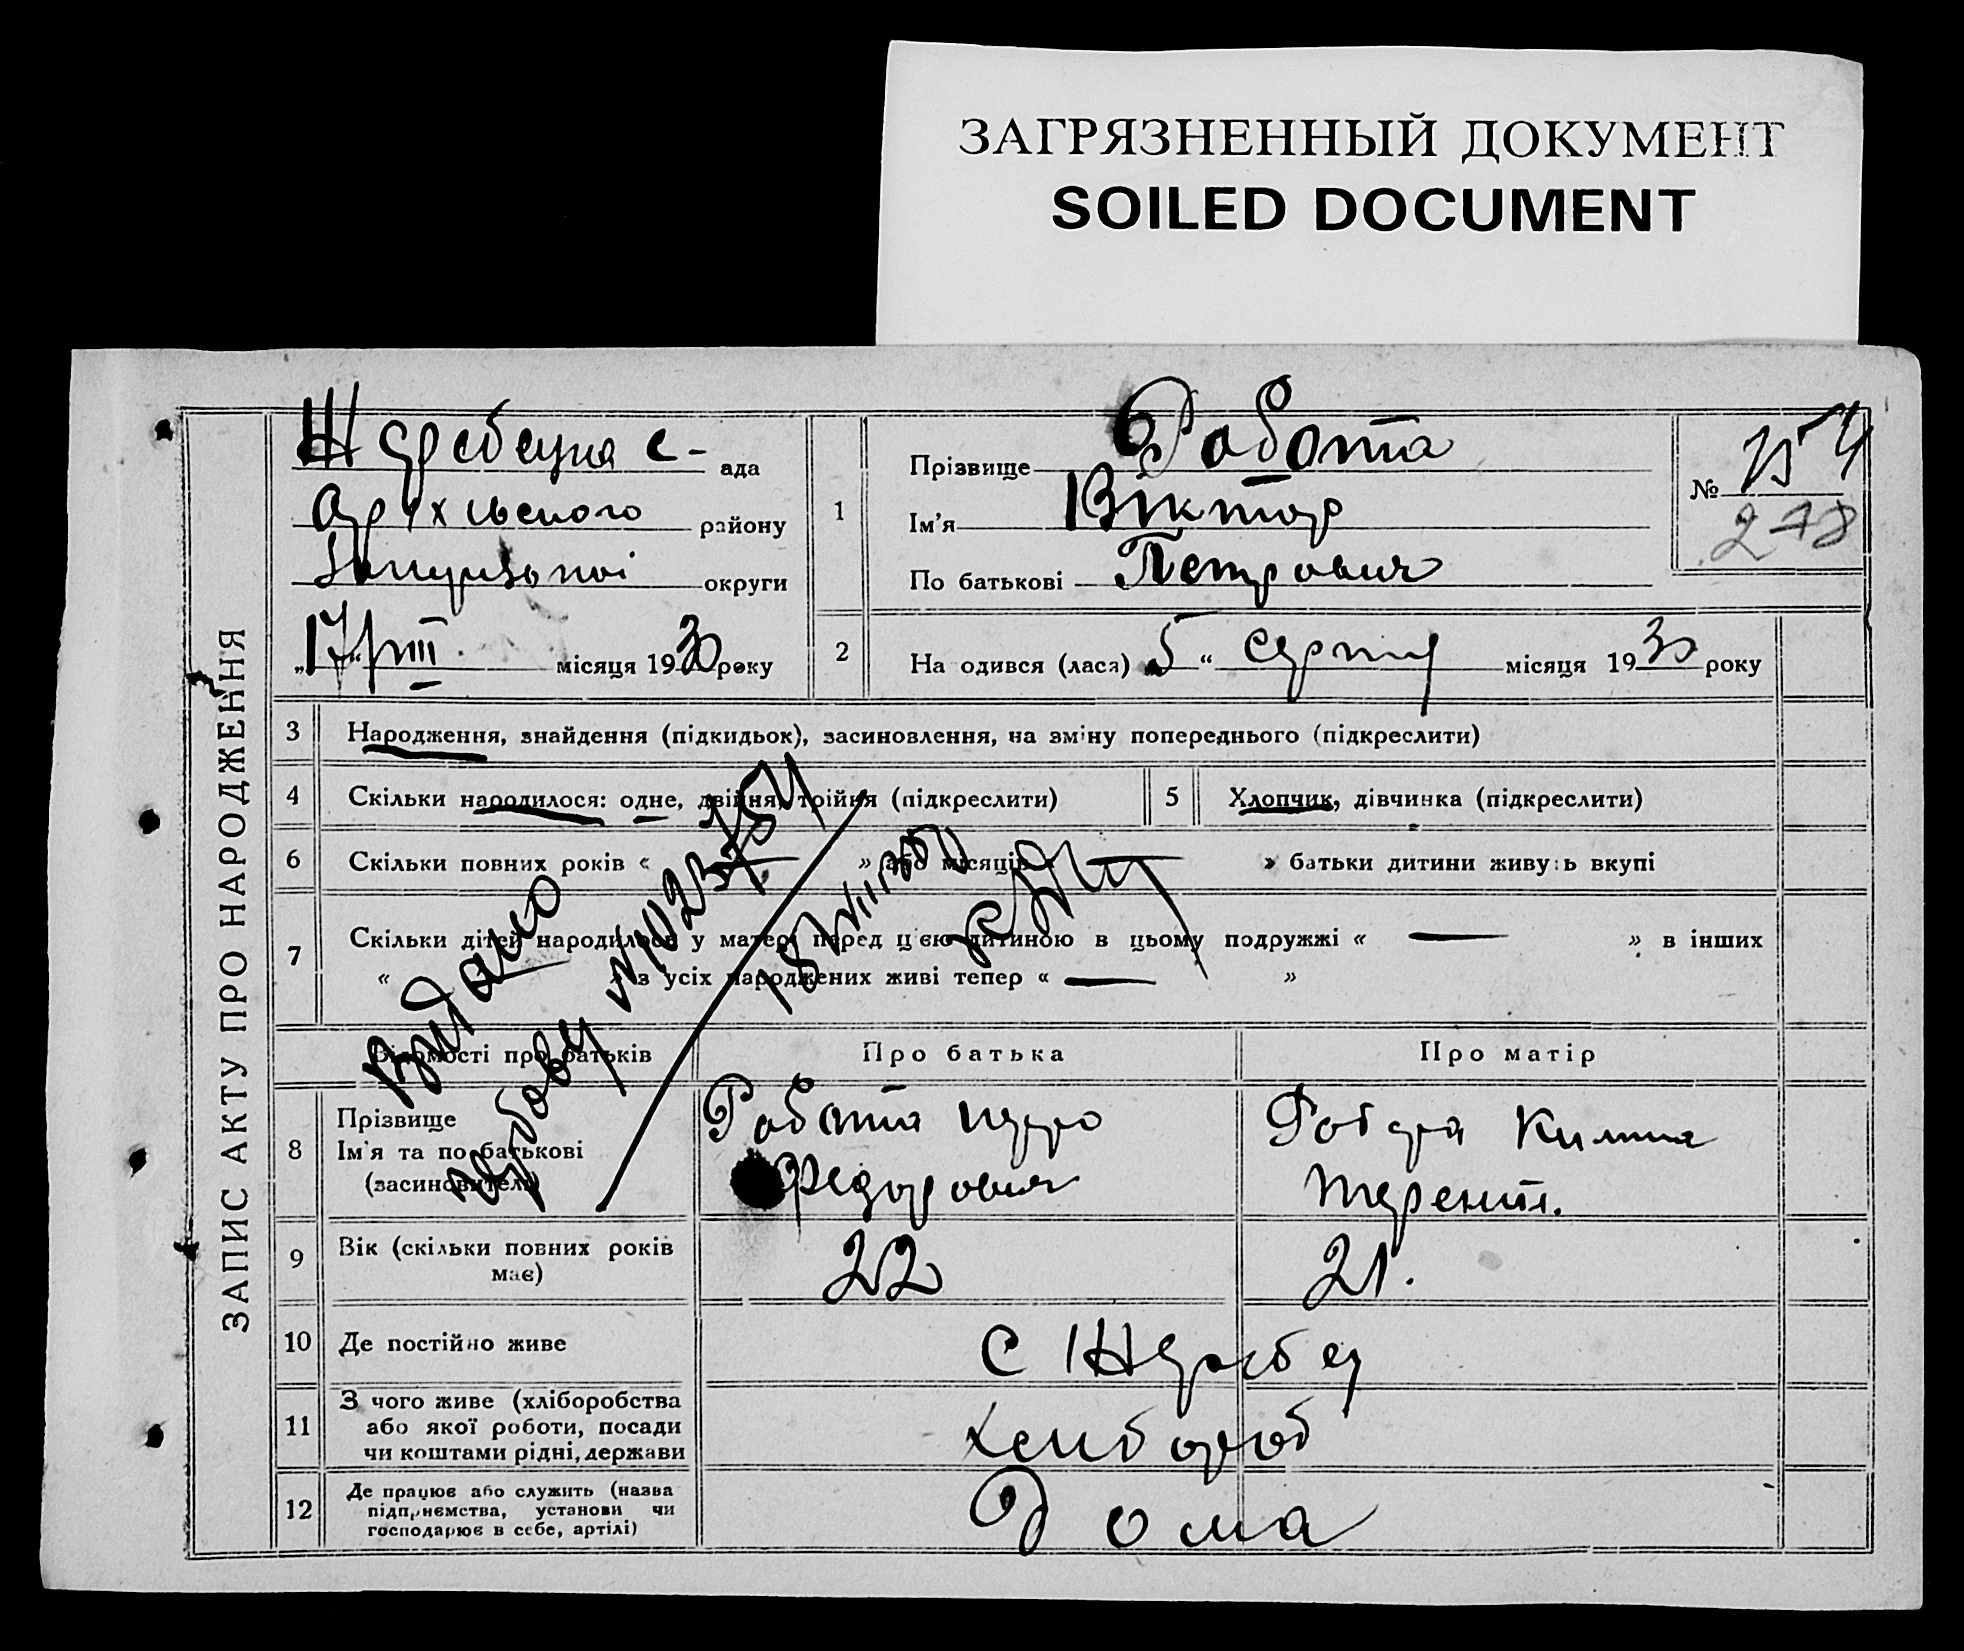 ЗАГРЯЗНЕННЫЙ ДОКУМЕНТ
SOILED DOCUMENT
ЗАПИС АКТУ ПРО НАРОДЖЕННЯ
с- ада
району
округи
місяця 1930 року
1
Прізвище Работа
Ім'я Віктор
По батькові Петрович
№
278
2
На одився (лася) 5 “ серпня місяця 1930 року
3 Народження, знайдення (підкидьок), засиновлення, на зміну попереднього (підкреслити)
4 Скільки народилося: одне, двійня, трійня (підкреслити)
5 Хлопчик, дівчинка (підкреслити)
6 Скільки повних років « — » або місяців « — » батьки дитини живуть вкупі
7 Скільки дітей народилося у матері перед цією дитиною в цьому подружжі « — » в інших
« » з усіх народжених живі тепер « — »
Видано
Відомості про батьків
Про батька
Про матір
8 Прізвище
Ім'я та по батькові
(засиновителя)
Работа Петро
Федорович
Работа
Терентя.
9 Вік (скільки повних років
має)
22
21.
10 Де постійно живе
с Жеребец
11 З чого живе (хліборобства
або якої роботи, посади
чи коштами рідні, держави
хлибороб
12 Де працює або служить (назва
підприємства, установи чи
господарює в себе, артілі)
Дома